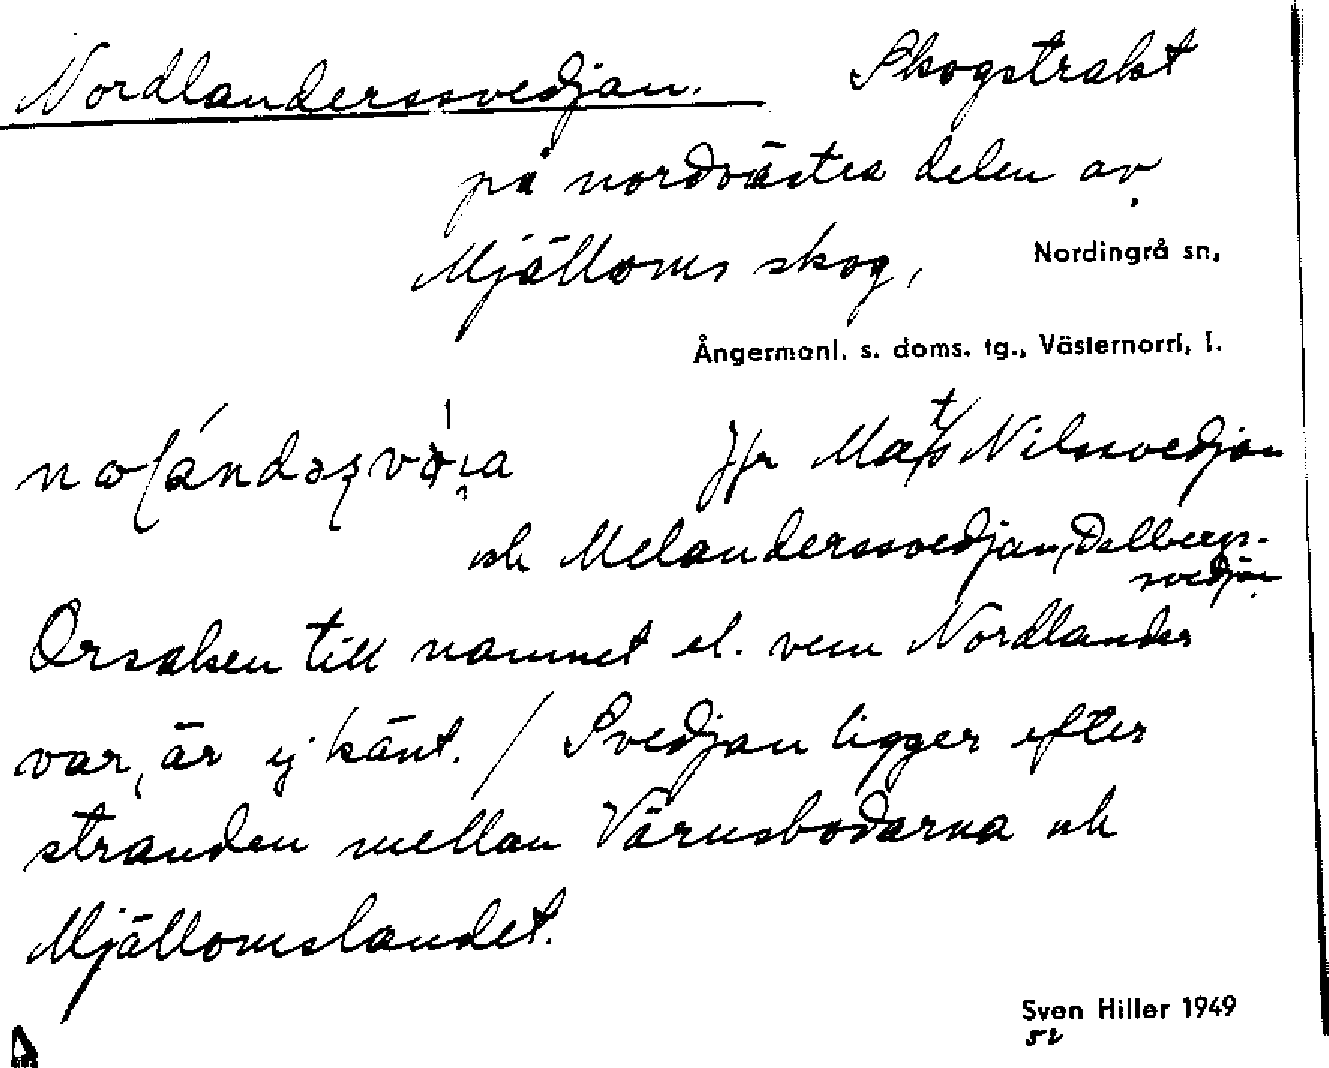 Nordlanderssvedjan. Skogstrakt
på nordvästra delen av
Mjälloms skog, Nordingrå sn,
Ångermanl. s. doms. tg., Västernorrl, l.
Jfr Mats Nilssvedjan
och Melanderssvedjan, Dalbergs-
svedjan
Orsaken till namnet el. vem Nordlander
var, är ej känt. / Svedjan ligger efter
stranden mellan Värnsbodarna och
Mjällomslandet.
Sven Hiller 1949
52